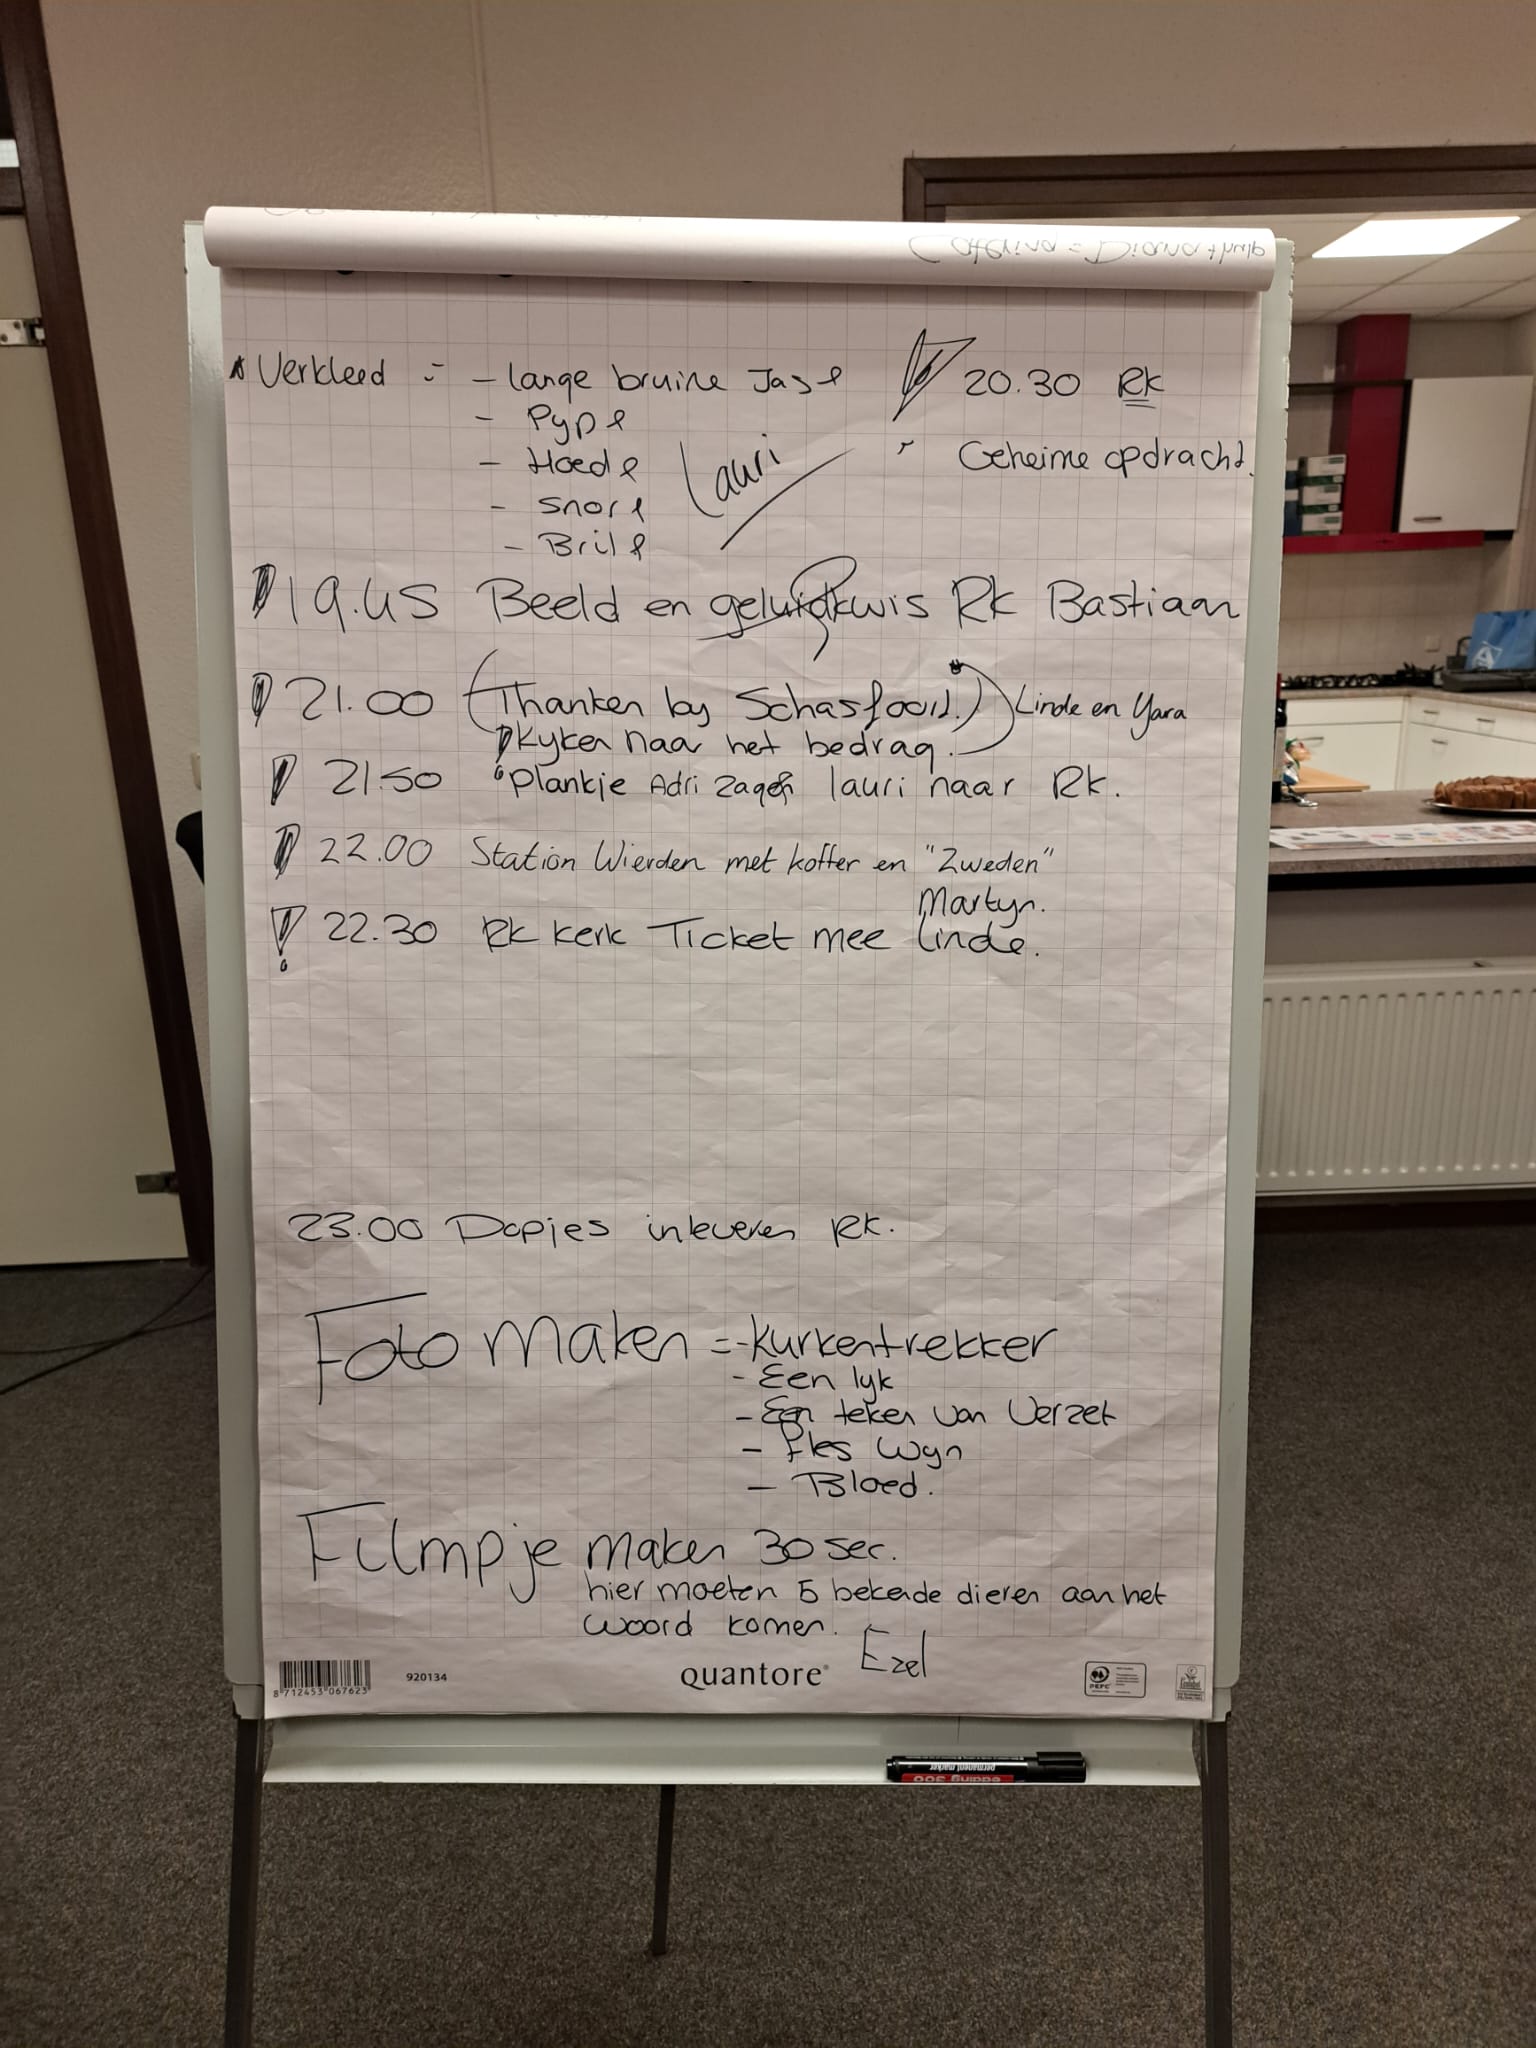 Caterina = Diana + hulp
* Verkleed = - lange bruine Jas
- Pyp
- Hoed
- Snor
- Bril
Lauri
20.30 RK
Geheime opdracht.
19.45 Beeld en geluidkwis RK Bastiaan
21.00 (Thanken by Schasfoort.) Linde en Yara
Kyken naar het bedrag.
21.50 Plankje Adri zagen lauri naar RK.
22.00 Station Wierden met koffer en "Zweden"
Martyn.
22.30 RK kerk Ticket mee Linde.
23.00 Dopjes inleveren RK.
Foto maken = - kurkentrekker
- Een lyk
- Een teken van Verzet
- Fles Wyn
- Bloed.
Filmpje maken 30 sec.
hier moeten 5 bekende dieren aan het
woord komen.
Ezel
8 712453 067623
920134
quantore
PEFC
permanent marker
edding 300